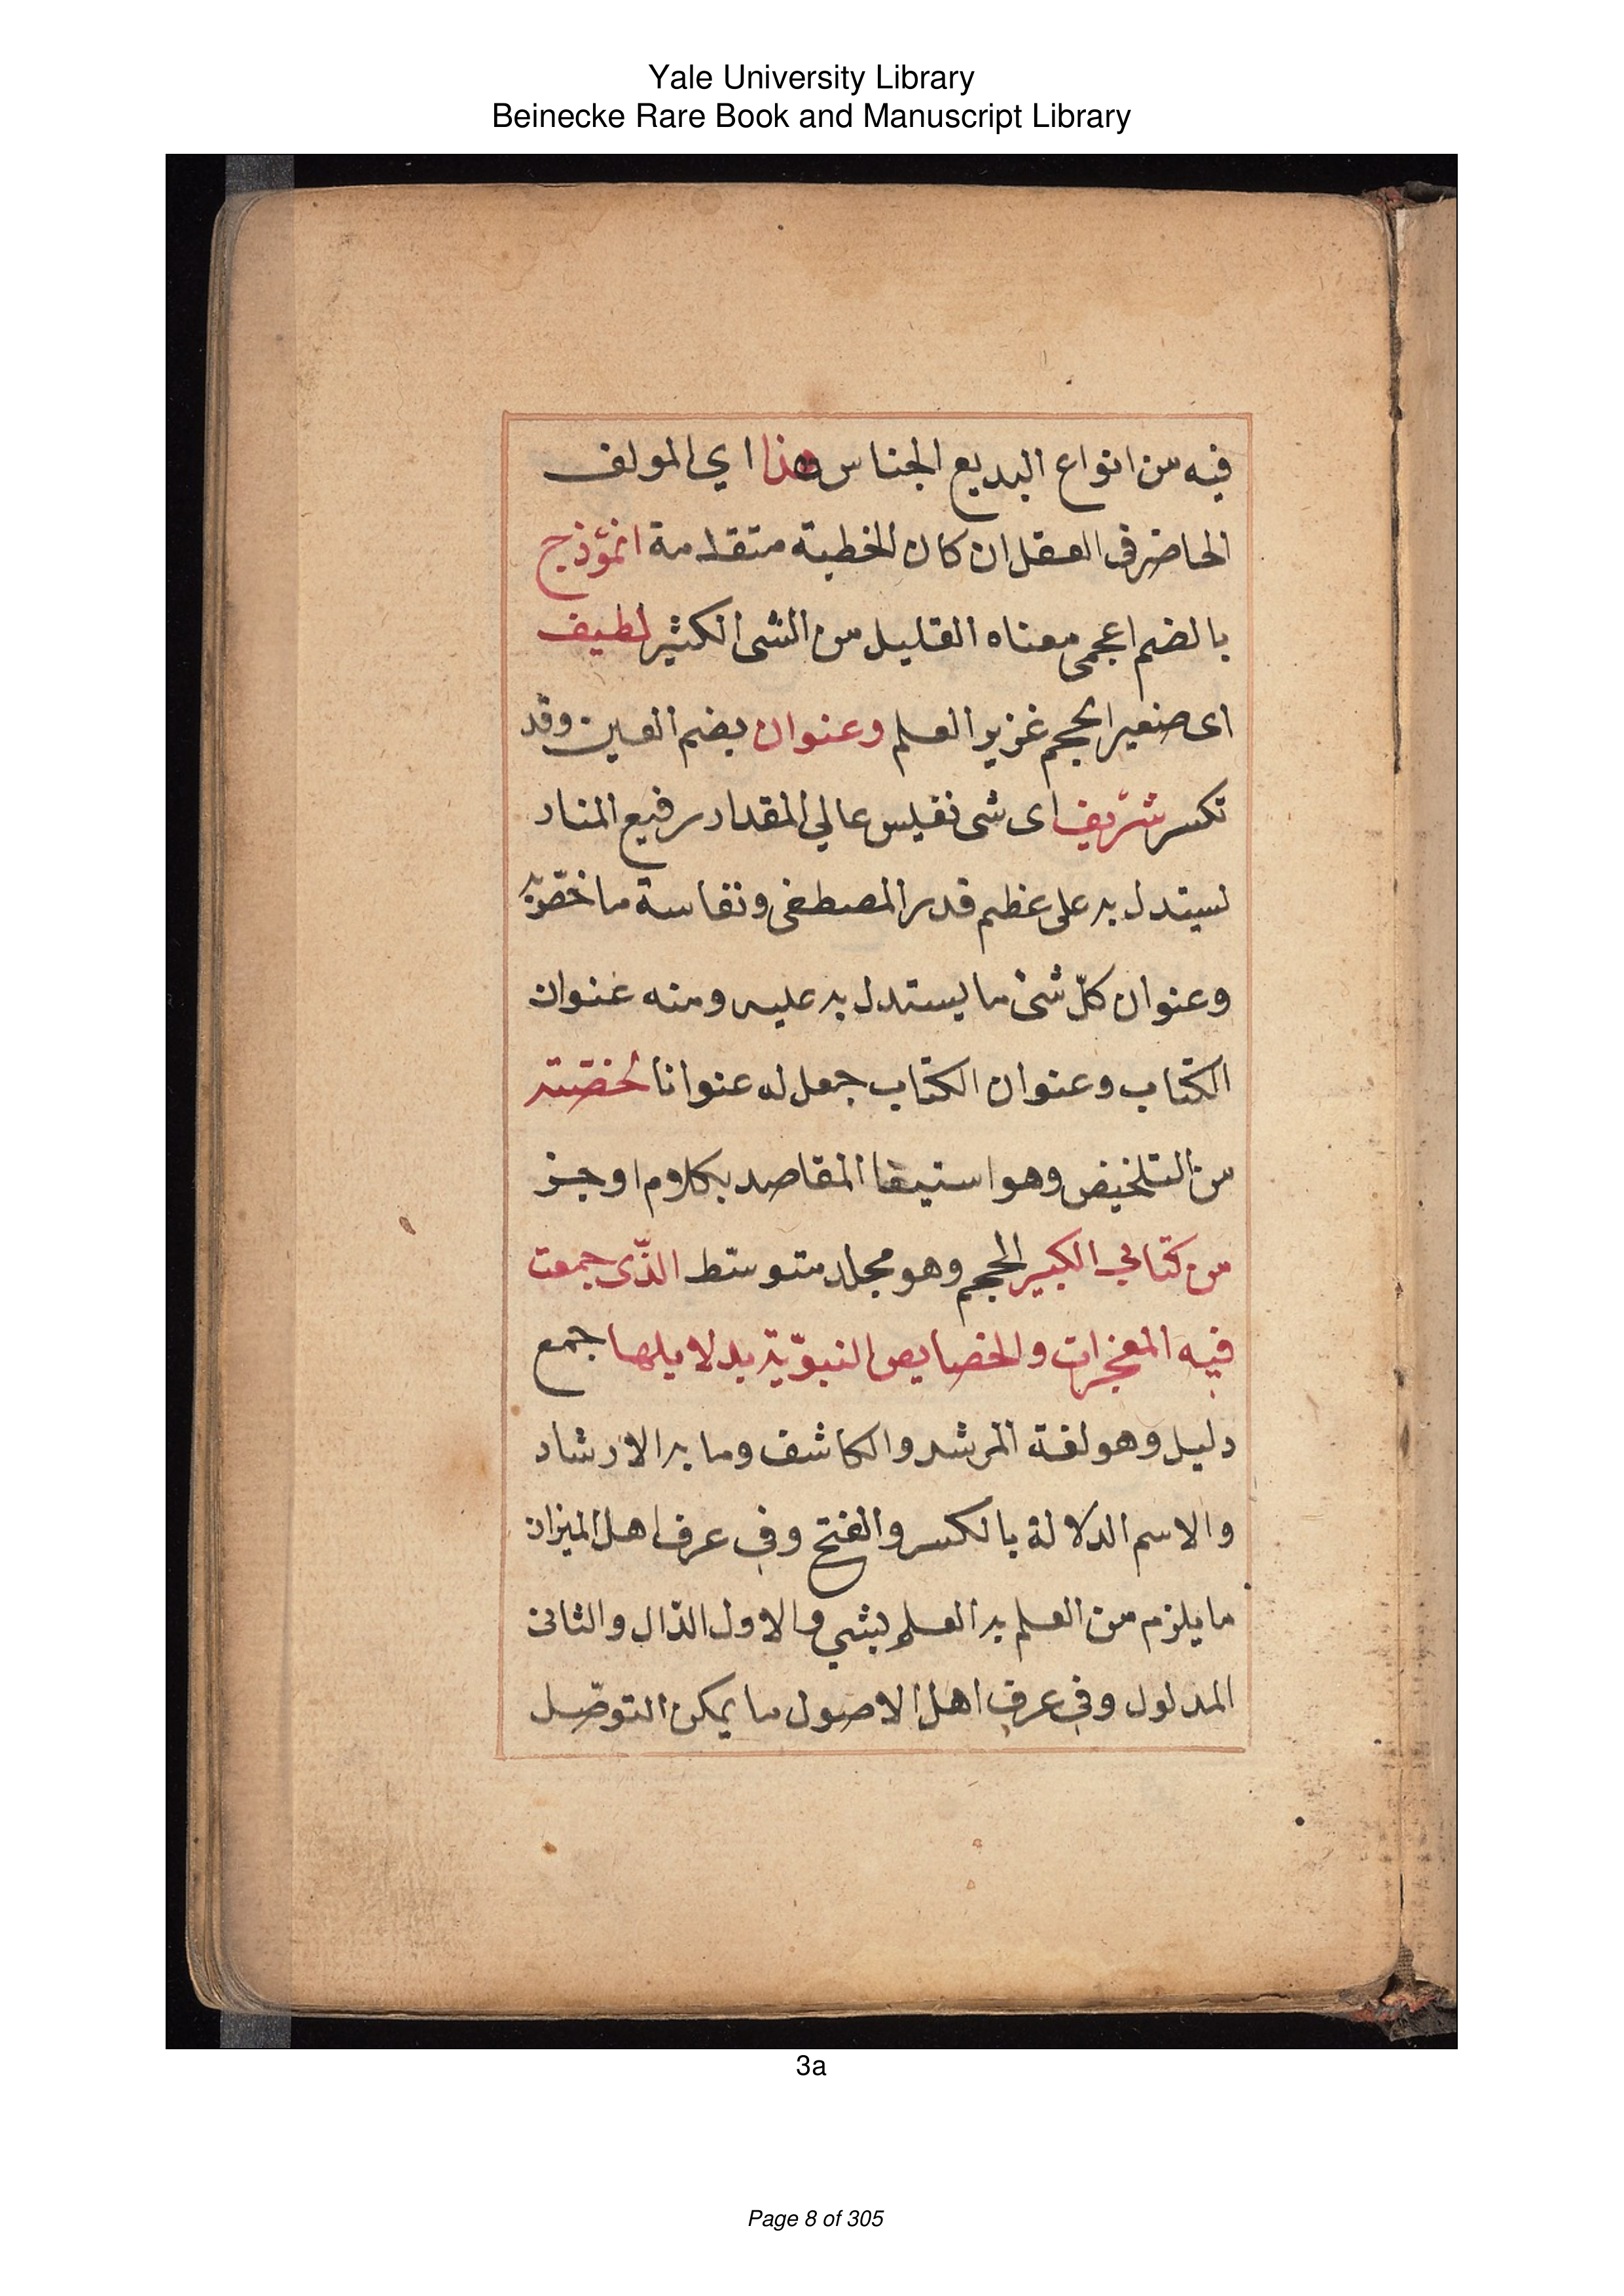 Yale University Library
Beinecke Rare Book and Manuscript Library
فيه من انواع البديع الجناس هذا اي المولف
الحاضر في العقل ان كان الخطبة متقدمة انمؤذج
بالضم اعجمى معناه القليل من الشى الكثير لطيف
اى صغير الحجم غزير العلم وعنوان بضم العين وقد
تكسر شريف اى شى نفيس عالي المقدار رفيع المنار
يستدل به على عظم قدر المصطفى ونفاسة ما خصّ به
وعنوان كلّ شئ ما يستدل به عليه ومنه عنوان
الكتاب وعنوان الكتاب جعل له عنوانا لخصته
من التلخيص وهو استيفا المقاصد بكلام اوجز
من كتابي الكبير الحجم وهو مجلد متوسط الذّى جمعت
فيه المعجزات والخصايص النبويّة بدلايلها جمع
دليل وهو لغة المرشد والكاشف وما به الارشاد
والاسم الدلالة بالكسر والفتح وفي عرف اهل الميزان
ما يلزم من العلم به العلم بشي والاول الدّال والثانى
المدلول وفي عرف اهل الاصول ما يمكن التوصّل
3a
Page 8 of 305